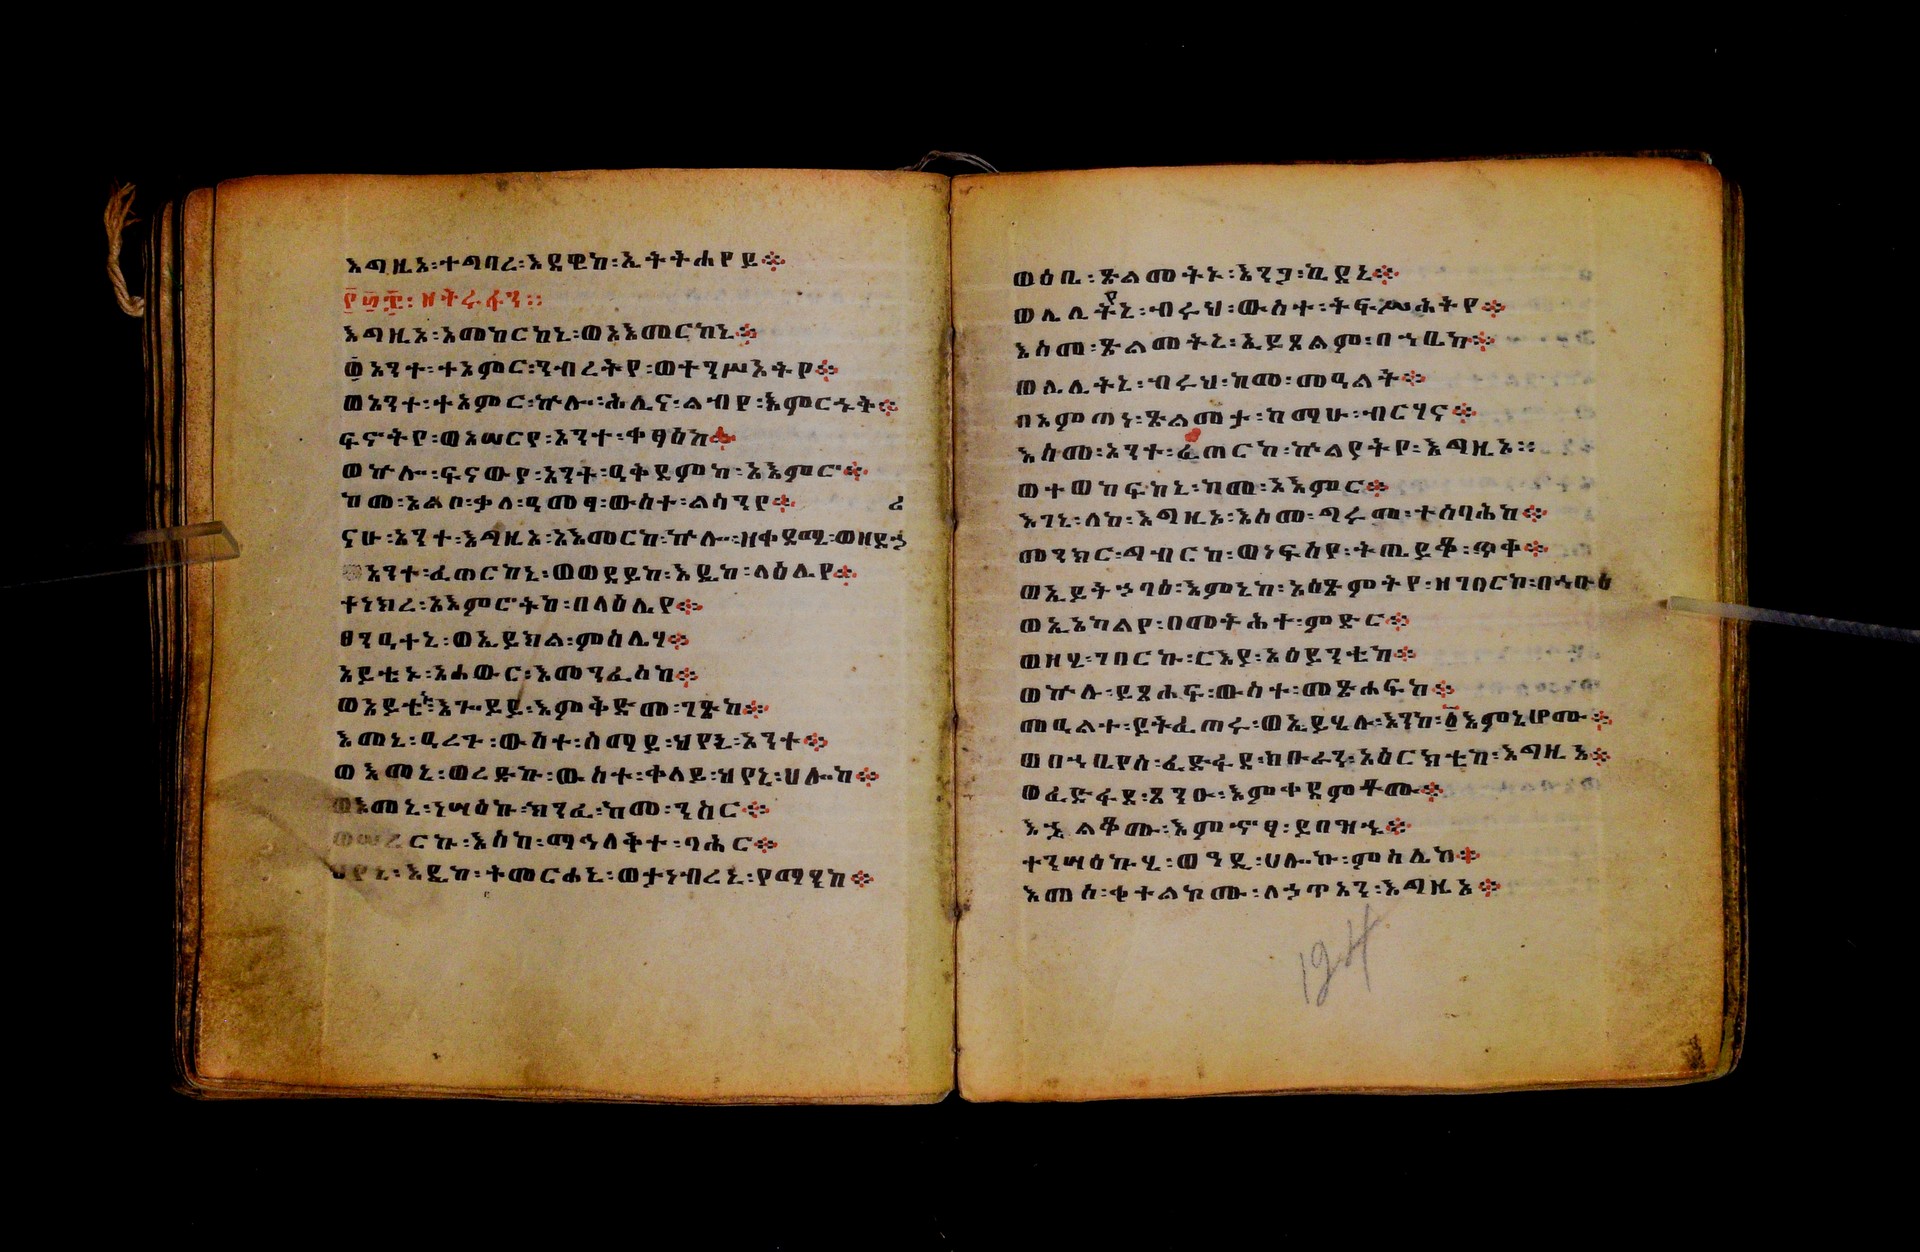 እግዚኦ፡ተግባረ፡እደዊከ፡ኢትትሐየይ።
፻፴፰፡ዘትራፋን፡፡
እግዚኦ፡አመከርከኒ፡ወአእመርከኒ።
ወአንተ፡ተአምር፡ንብረትየ፡ወተንሥኦትየ።
ወአንተ፡ተአምር፡ኵሎ፡ሕሊና፡ልብየ፡እምርኁት።
ፍኖትየ፡ወአሠርየ፡አንተ፡ቀፃዕከ።
ወኵሎ፡ፍናውየ፡አንተ፡ዲቅደምከ፡አእምሮ።
ከመ፡አልቦ፡ቃለ፡ዓመፃ፡ውስተ፡ልሳንየ።
ናሁ፡አንተ፡እግዚኦ፡አእመርከ፡ኵሎ፡ዘቀደሚ፡ወዘደኃ
ሪ
አንተ፡ፈጠርከኒ፡ወወደይከ፡እዴከ፡ላዕሌየ።
ተነክረ፡አእምሮትከ፡በላዕሌየ።
ፀንዓተኒ፡ወኢይክል፡ምስሌሃ።
አይቴኑ፡አሐውር፡እመንፈስከ።
ወአይቴኑ፡እጐይይ፡እምቅድመ፡ገጽከ።
እመኒ፡ዓረጉ፡ውስተ፡ሰማይ፡ህየኒ፡አንተ።
ወእመኒ፡ወረድኩ፡ውስተ፡ቀላይ፡ህየኒ፡ሀሎከ።
ወእመኒ፡ነሣዕኩ፡ክንፈ፡ከመ፡ንስር።
ወሠረርኩ፡እስከ፡ማኅለቅተ፡ባሕር።
ህየኒ፡እዴከ፡ትመርሐኒ፡ወታነብረኒ፡የማንከ።
ወዕቤ፡ጽልመትኑ፡እንጋ፡ኬደኒ።
ወሌሊትየኒ፡ብሩህ፡ውስተ፡ትፍሥሕትየ።
እስመ፡ጽልመትኒ፡ኢይጸልም፡በኀቤከ።
ወሌሊትኒ፡ብሩህ፡ከመ፡መዓልት።
በአምጣነ፡ጽልመታ፡ከማሁ፡ብርሃና።
እስመ፡አንተ፡ፈጠርከ፡ኵልያትየ፡እግዚኦ፡፡
ወተወከፍከኒ፡ከመ፡አእምር።
እገኒ፡ለከ፡እግዚኦ፡እስመ፡ግሩመ፡ተሰባሕከ።
መንክር፡ግብርከ፡ወነፍስየ፡ትጤይቆ፡ጥቀ።
ወኢይትኃባዕ፡እምኔከ፡አዕጽምትየ፡ዘገበርከ፡በኅቡዕ
ወኢኣካልየ፡በመትሕተ፡ምድር።
ወዘሂ፡ገበርኩ፡ርእያ፡አዕይንቲከ።
ወኵሉ፡ይጸሐፍ፡ውስተ፡መጽሐፍከ።
መዓልተ፡ይትፈጠሩ፡ወኢይሄሉ፡እንከ፡፩እምኔሆሙ።
ወበኀቤየሰ፡ፈድፋደ፡ክቡራን፡አዕርክቲከ፡እግዚኦ።
ወፈድፋደ፡ጸንዑ፡እምቀደምቶሙ።
እኌልቆሙ፡እምኆፃ፡ይበዝኁ።
ተንሣዕኩሂ፡ወዓዲ፡ሀሎኩ፡ምስሌከ።
እመሰ፡ቄተልኮሙ፡ለኃጥአን፡እግዚኦ።
124